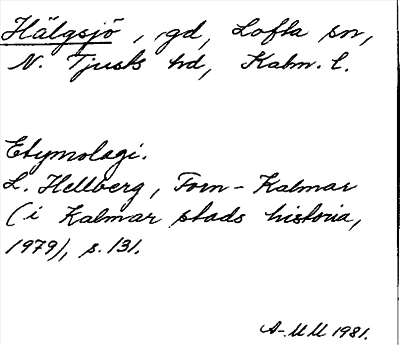 Hälgsjö, gd, Lofta sn,
N. Tjusts hd, Kalm. l.
Etymologi.
L. Hellberg, Forn-Kalmar
(i Kalmar stads historia,
1979), s. 131.
A-MM 1981.